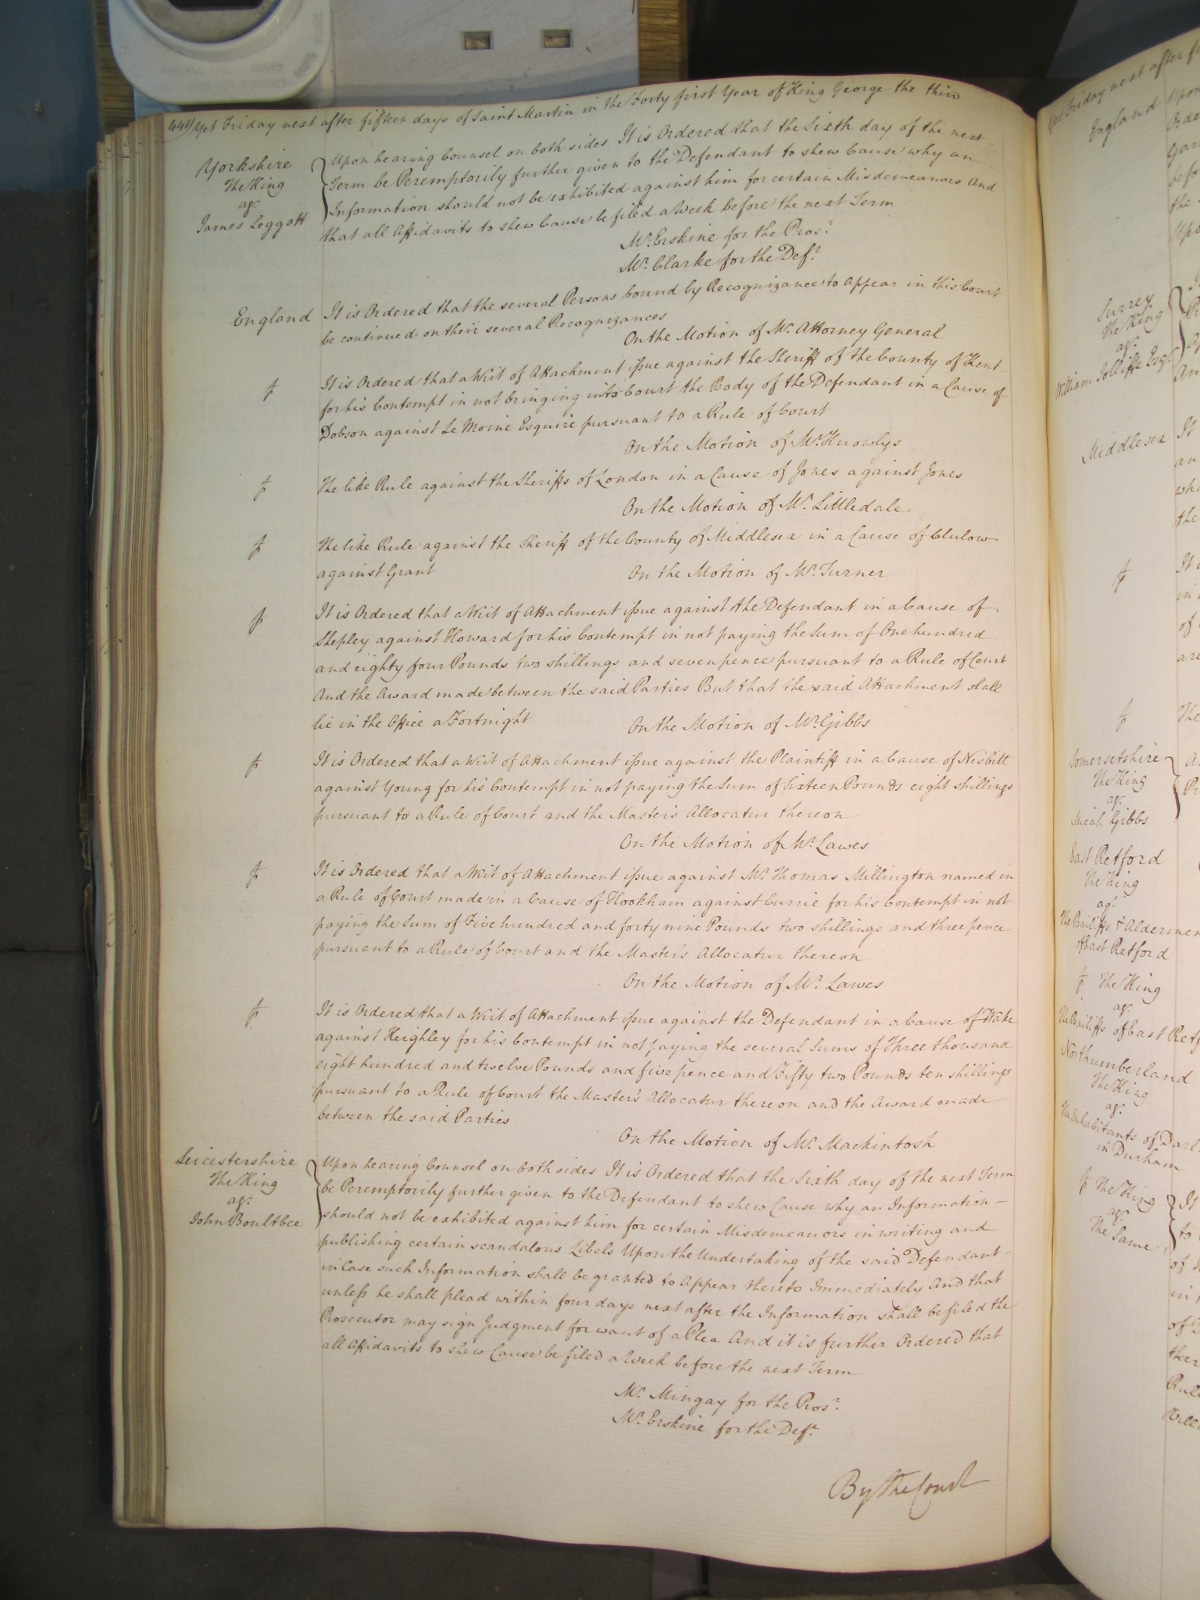 441 Yet Friday next after fifteen days of Saint Martin in the Forty first Year of King George the third
Yorkshire
The King
agt.
James Leggott
Upon hearing Counsel on both sides It is Ordered that the Sixth day of the next
Term be Peremptorily further given to the Defendant to shew Cause why an
Information should not be exhibited against him for certain Misdemeanors And
that all Affidavits to shew Cause be filed a Week before the next Term
Mr. Erskine for the Prosr.
Mr. Clarke for the Deft.
England
It is Ordered that the several Persons bound by Recognizance to Appear in this Court
be continued on their several Recognizances
On the Motion of Mr. Attorney General
It is Ordered that a Writ of Attachment issue against the Sheriff of the County of Kent
for his Contempt in not bringing into Court the Body of the Defendant in a Cause of
Dobson against Le Moine Esquire pursuant to a Rule of Court
On the Motion of Mr. Knowlys
The like Rule against the Sheriffs of London in a Cause of Jones against Jones
On the Motion of Mr. Littledale
The like Rule against the Sheriff of the County of Middlesex in a Cause of Clulow
against Grant
On the Motion of Mr. Turner
It is Ordered that a Writ of Attachment issue against the Defendant in a Cause of
Shepley against Howard for his Contempt in not paying the Sum of One hundred
and eighty four Pounds two shillings and sevenpence pursuant to a Rule of Court
And the Award made between the said Parties But that the said Attachment shall
lie in the Office a Fortnight
On the Motion of Mr. Gibbs
It is Ordered that a Writ of Attachment issue against the Plaintiff in a Cause of Nisbitt
against Young for his Contempt in not paying the Sum of Sixteen Pounds eight shillings
pursuant to a Rule of Court and the Master's Allocatur thereon
On the Motion of Mr. Lawes
It is Ordered that a Writ of Attachment issue against Mr. Thomas Millington named in
a Rule of Court made in a Cause of Hookham against Currie for his Contempt in not
paying the Sum of Five hundred and forty nine Pounds two shillings and three pence
pursuant to a Rule of Court and the Master's Allocatur thereon
On the Motion of Mr. Lawes
It is Ordered that a Writ of Attachment issue against the Defendant in a Cause of Wake
against Keighley for his Contempt in not paying the several Sums of Three thousand
eight hundred and twelve Pounds and five pence and Fifty two Pounds ten shillings
pursuant to a Rule of Court the Master's Allocatur thereon and the Award made
between the said Parties
On the Motion of Mr. Mackintosh
Leicestershire
The King
agt.
John Boultbee
Upon hearing Counsel on both sides It is Ordered that the Sixth day of the next Term
be Peremptorily further given to the Defendant to shew Cause why an Information
should not be exhibited against him for certain Misdemeanors in writing and
publishing certain scandalous Libels Upon the Undertaking of the said Defendant
in Case such Information shall be granted to Appear thereto Immediately And that
unless he shall plead within four days next after the Information shall be filed the
Prosecutor may sign Judgment for want of a Plea And it is further Ordered that
all Affidavits to shew Cause be filed a Week before the next Term
Mr. Mingay for the Prosr.
Mr. Erskine for the Deft.
By the Court
Yet Friday next after
England
Surrey
The King
agt.
William Jolliffe Esqr.
Middlesex
Somersetshire
The King
agt.
Micah Gibbs
East Retford
The King
agt.
The Bailiffs & Aldermen
of East Retford
The King
agt.
The Bailiffs of East
Northumberland
The King
agt.
The Inhabitants of
in Durham
The King
agt.
The Same